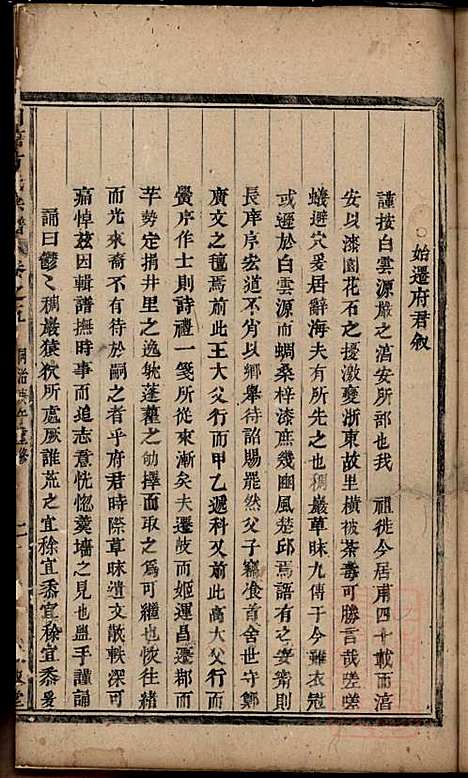 始遷府君敘
謹按白雲源嚴之淯安所部也我 祖徙今居甫四十載而淯
安以漆園花石之擾激變浙東故里橫被荼毒可勝言哉嗟
蟻避穴爰居辭海夫有所先之也稠巖草昧九傳于今雖衣冠
或遜於白雲源而蜩桑梓漆庶幾豳風楚邱焉語有之安齊則
長庠序宏道不何以鄉舉待詔賜罷然父子竊准首舍世守鄭
廣文之氊焉前此王大父行而甲乙遞科父前此高大父行而
黌序作士則詩禮一箋所從來漸矣夫遷岐而姬運昌遷鄀而
芉勢定捐井里之逸躭蓬藋之劬擇而取之何為可繼也恢往緒
而光來裔不有待於嗣之者乎府君時際草昧遺文散軼深可
痛悼茲因輯譜撫時事而追志意恍惚羹墻之見也盥手謹誦
誦曰鬱之稠巖猿狖所處厥誰荒之宜稌宜黍宜稌宜黍爰